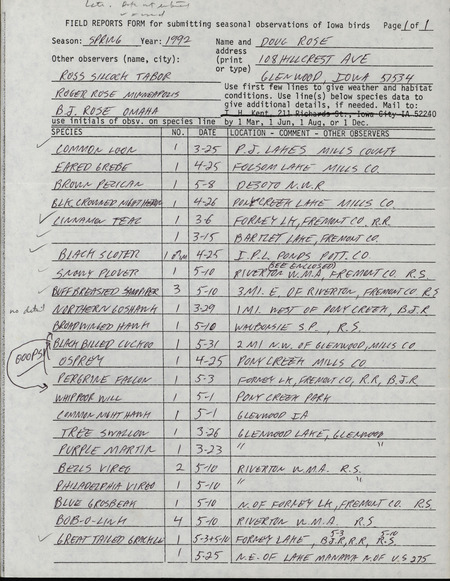 FIELD REPORTS FORM for submitting seasonal observations of Iowa birds Page 1 of 1
Season: SPRING Year: 1992 Name and DOUG ROSE
Other observers (name, city): address 108 HILLCREST AVE
(print
ROSS SILCOCK TABOR or type) GLENWOOD, IOWA 51534
ROGER ROSE MINNEAPOLIS
B.J. ROSE OMAHA
Use first few lines to give weather and habitat
conditions. Use line(s) below species data to
give additional details, if needed. Mail to:
T. H. Kent, 211 Richards St., Iowa City IA 52240
use initials of obsv. on species line by 1 Mar, 1 Jun, 1 Aug, or 1 Dec.
SPECIES NO. DATE LOCATION - COMMENT - OTHER OBSERVERS
✓ COMMON LOON 1 3-25 P.J. LAKES MILLS COUNTY
EARED GREBE 1 4-25 FOLSOM LAKE MILLS CO.
BROWN PELICAN 1 5-8 DESOTO N.W.R
BLK. CROWNED NIGHT HERON 1 4-26 PONY CREEK LAKE MILLS CO.
✓ CINNAMON TEAL 1 3-6 FORNEY LK, FREMONT CO. R.R.
✓ 1 3-15 BARTLET LAKE, FREMONT CO.
✓ BLACK SCOTER 1 4-25 I.P.L PONDS POTT. CO
✓ SNOWY PLOVER 1 5-10 RIVERTON W.M.A. FREMONT CO. R.S.
(SEE ENCLOSED)
✓ BUFF BREASTED SANDPIPER 3 5-10 3 MI. E. OF RIVERTON, FREMONT CO. R.S
no details NORTHERN GOSHAWK 1 3-29 1 MI. WEST OF PONY CREEK, B.J.R
BROADWINGED HAWK 1 5-10 WAUBONSIE S.P., R.S.
OOOPS! BLACK BILLED CUCKOO 1 5-31 2 MI N.W. OF GLENWOOD, MILLS CO
OSPREY 1 4-25 PONY CREEK MILLS CO
PEREGRINE FALCON 1 5-3 FORNEY LK, FREMONT CO, R.R, B.J.R
WHIP POOR WILL 1 5-1 PONY CREEK PARK
COMMON NIGHT HAWK 1 5-1 GLENWOOD IA
TREE SWALLOW 1 3-26 GLENWOOD LAKE, GLENWOOD
PURPLE MARTIN 1 3-23 " "
BELLS VIREO 2 5-10 RIVERTON W.M.A. R.S.
PHILADELPHIA VIREO 1 5-10 " "
BLUE GROSBEAK 5-10 N. OF FORNEY LK, FREMONT CO. R.S
BOB-O-LINK 4 5-10 RIVERTON W.M.A. R.S
5-3 5-10
✓ GREAT TAILED GRACKLE 1 5-3+5-10 FORNEY LAKE, B.J.R, R.R, R.S.
1 5-25 N.E. OF LAKE MANAWA N. OF U.S 275